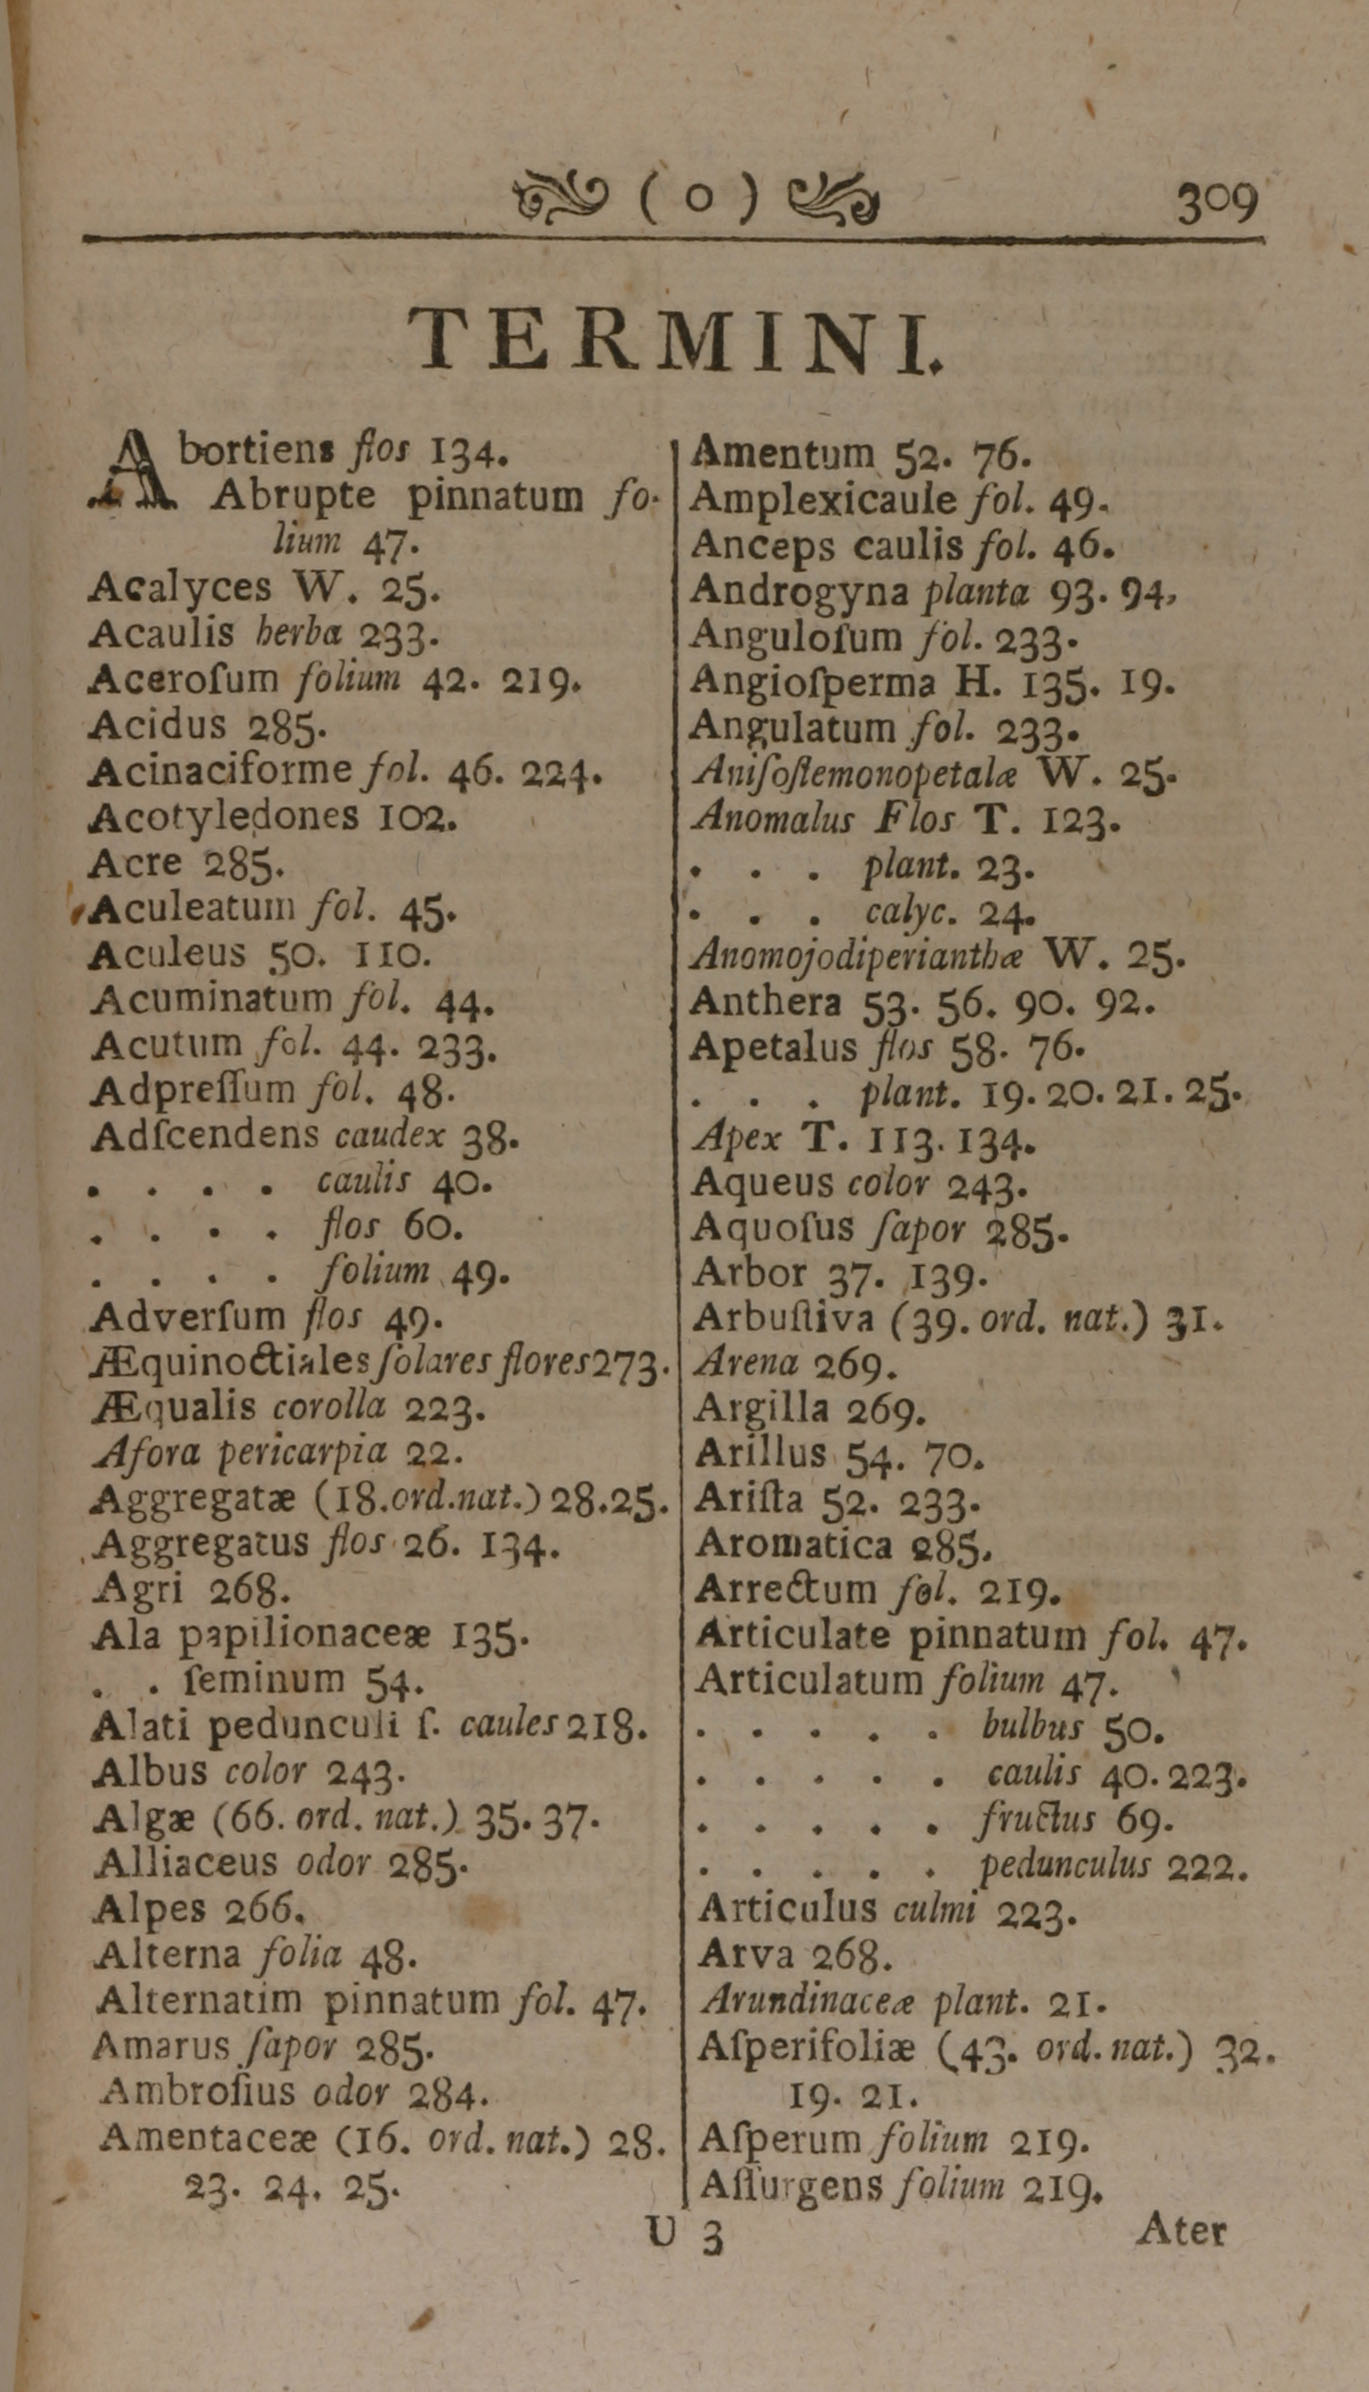 ( o ) 309
TERMINI.
Abortiens flos 134.
Abrupte pinnatum fo-
lium 47.
Acalyces W. 25.
Acaulis herba 233.
Aceroſum folium 42. 219.
Acidus 285.
Acinaciforme fol. 46. 224.
Acotyledones 102.
Acre 285.
Aculeatum fol. 45.
Aculeus 50. 110.
Acuminatum fol. 44.
Acutum fol. 44. 233.
Adpreſſum fol. 48.
Adſcendens caudex 38.
. . . . caulis 40.
. . . . flos 60.
. . . . folium 49.
Adverſum flos 49.
Æquinoctiales ſolares flores 273.
Æqualis corolla 223.
Afora pericarpia 22.
Aggregatæ (18.ord.nat.) 28.25.
Aggregatus flos 26. 134.
Agri 268.
Ala papilionaceæ 135.
. . ſeminum 54.
Alati pedunculi ſ. caules 218.
Albus color 243.
Algæ (66. ord. nat.) 35. 37.
Alliaceus odor 285.
Alpes 266.
Alterna folia 48.
Alternatim pinnatum fol. 47.
Amarus ſapor 285.
Ambroſius odor 284.
Amentaceæ (16. ord. nat.) 28.
23. 24. 25.
Amentum 52. 76.
Amplexicaule fol. 49.
Anceps caulis fol. 46.
Androgyna planta 93. 94,
Anguloſum fol. 233.
Angioſperma H. 135. 19.
Angulatum fol. 233.
Aniſoſtemonopetalæ W. 25.
Anomalus Flos T. 123.
. . . plant. 23.
. . . calyc. 24.
Anomojodiperianthæ W. 25.
Anthera 53. 56. 90. 92.
Apetalus flos 58. 76.
. . . plant. 19. 20. 21. 25.
Apex T. 113. 134.
Aqueus color 243.
Aquoſus ſapor 285.
Arbor 37. 139.
Arbuſtiva (39. ord. nat.) 31.
Arena 269.
Argilla 269.
Arillus 54. 70.
Ariſta 52. 233.
Aromatica 285.
Arrectum fol. 219.
Articulate pinnatum fol. 47.
Articulatum folium 47.
. . . . . bulbus 50.
. . . . . caulis 40. 223.
. . . . . fructus 69.
. . . . . pedunculus 222.
Articulus culmi 223.
Arva 268.
Arundinaceæ plant. 21.
Aſperifoliæ (43. ord. nat.) 32.
19. 21.
Aſperum folium 219.
Aſſurgens folium 219.
U 3 Ater